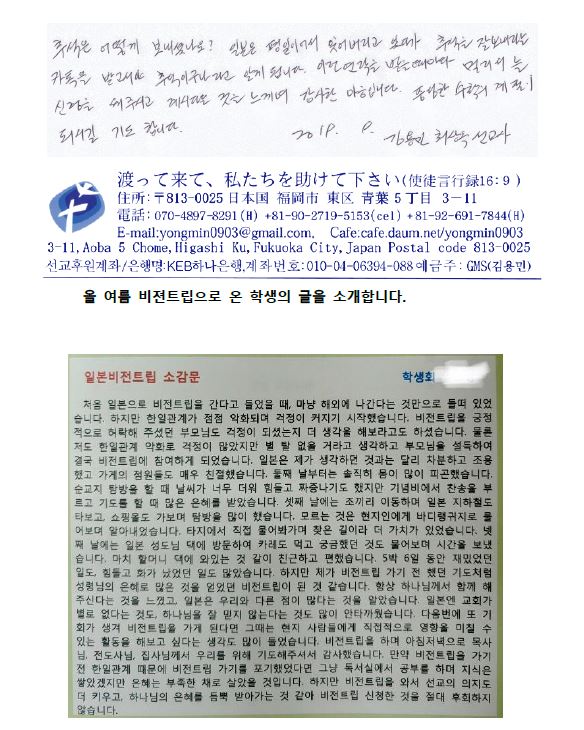 추석은 어떻게 보내셨나요? 일본은 평일이어서 잊어버리고 있다가 추석을 잘보내라는
카톡을 받고서야 추석이구나라고 알게 됩니다. 이런 연락을 받을때마다 멀리서 늘
신경을 써주시고 계시다는 것을 느끼며 감사한 마음입니다. 풍성한 수확의 계절이
되시길 기도 합니다. 2019. 9. 김용민 최상숙 선교사
渡って来て、私たちを助けて下さい(使徒言行録16:9)
住所:〒813-0025 日本国 福岡市 東区 青葉 5丁目 3-11
電話: 070-4897-8291(H) +81-90-2719-5153(cel) +81-92-691-7844(H)
E-mail:yongmin0903@gmail.com, Cafe:cafe.daum.net/yongmin0903
3-11,Aoba 5 Chome,Higashi Ku,Fukuoka City,Japan Postal code 813-0025
선교후원계좌/은행명:KEB하나은행,계좌번호:010-04-06394-088 예금주: GMS(김용민)
올 여름 비전트립으로 온 학생의 글을 소개합니다.
일본비전트립 소감문 학생회
처음 일본으로 비전트립을 간다고 들었을 때, 마냥 해외에 나간다는 것만으로 들떠 있었
습니다. 하지만 한일관계가 점점 악화되며 걱정이 커지기 시작했습니다. 비전트립을 긍정
적으로 허락해 주셨던 부모님도 걱정이 되셨는지 더 생각을 해보라고도 하셨습니다. 물론
저도 한일관계 악화로 걱정이 많았지만 별 탈 없을 거라고 생각하고 부모님을 설득하여
결국 비전트립에 참여하게 되었습니다. 일본은 제가 생각하던 것과는 달리 차분하고 조용
했고 가게의 점원들도 매우 친절했습니다. 둘째 날부터는 솔직히 몸이 많이 피곤했습니다.
순교지 탐방을 할 때 날씨가 너무 더워 힘들고 짜증나기도 했지만 기념비에서 찬송을 부
르고 기도를 할 때 많은 은혜를 받았습니다. 셋째 날에는 조끼리 이동하며 일본 지하철도
타보고, 쇼핑몰도 가보며 탐방을 많이 했습니다. 모르는 것은 현지인에게 바디랭귀지로 물
어보며 알아내었습니다. 타지에서 직접 물어봐가며 찾은 길이라 더 가치가 있었습니다. 넷
째 날에는 일본 성도님 댁에 방문하여 카레도 먹고 궁금했던 것도 물어보며 시간을 보냈
습니다. 마치 할머니 댁에 와있는 것 같이 친근하고 편했습니다. 5박 6일 동안 재밌었던
일도, 힘들고 화가 났었던 일도 많았습니다. 하지만 제가 비전트립 가기 전 했던 기도처럼
성령님의 은혜로 많은 것을 얻었던 비전트립이 된 것 같습니다. 항상 하나님께서 함께 해
주신다는 것을 느꼈고, 일본은 우리와 다른 점이 많다는 것을 알았습니다. 일본엔 교회가
별로 없다는 것도, 하나님을 잘 믿지 않는다는 것도 많이 안타까웠습니다. 다음번에 또 기
회가 생겨 비전트립을 가게 된다면 그때는 현지 사람들에게 직접적으로 영향을 미칠 수
있는 활동을 해보고 싶다는 생각도 많이 들었습니다. 비전트립을 하며 아침저녁으로 목사
님, 전도사님, 집사님께서 우리를 위해 기도해주셔서 감사했습니다. 만약 비전트립을 가기
전 한일관계 때문에 비전트립 가기를 포기했었다면 그냥 독서실에서 공부를 하며 지식은
쌓았겠지만 은혜는 부족한 채로 살았을 것입니다. 하지만 비전트립을 와서 선교의 의지도
더 키우고, 하나님의 은혜를 듬뿍 받아가는 것 같아 비전트립 신청한 것을 절대 후회하지
않습니다.